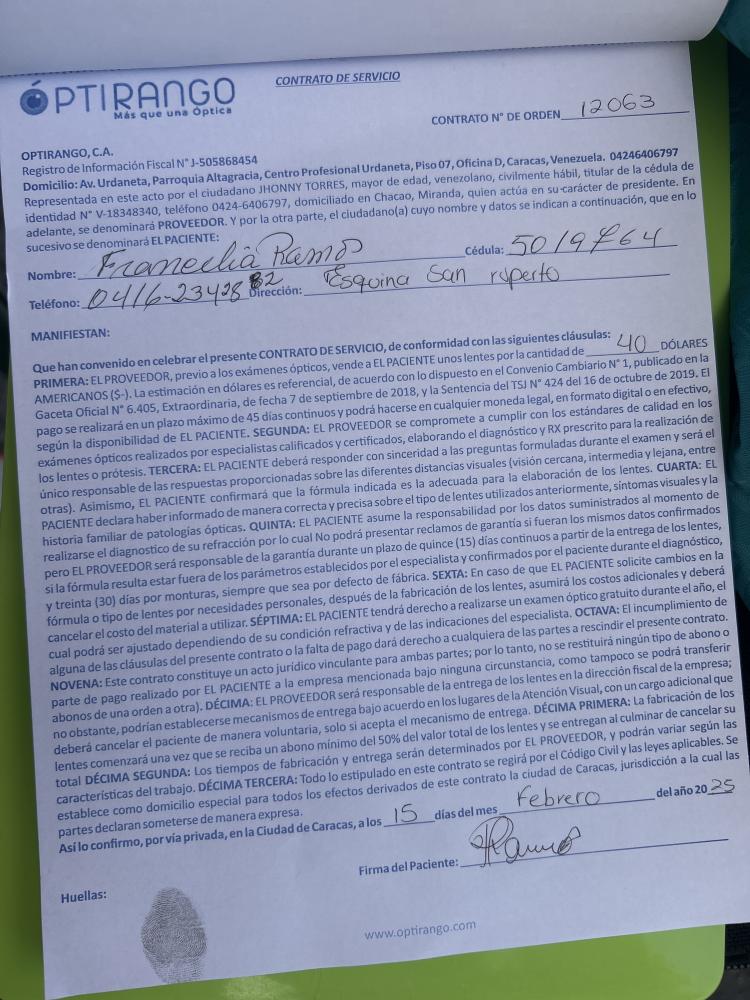 ÓPTIRANGO
Más que una Óptica
CONTRATO DE SERVICIO
CONTRATO N° DE ORDEN 12063
OPTIRANGO, C.A.
Registro de Información Fiscal N° J-505868454
Domicilio: Av. Urdaneta, Parroquia Altagracia, Centro Profesional Urdaneta, Piso 07, Oficina D, Caracas, Venezuela. 04246406797
Representada en este acto por el ciudadano JHONNY TORRES, mayor de edad, venezolano, civilmente hábil, titular de la cédula de
identidad N° V-18348340, teléfono 0424-6406797, domiciliado en Chacao, Miranda, quien actúa en su carácter de presidente. En
adelante, se denominará PROVEEDOR. Y por la otra parte, el ciudadano(a) cuyo nombre y datos se indican a continuación, que en lo
sucesivo se denominará EL PACIENTE:
Nombre: Ramos Cédula: 5019764
Teléfono: 0416-23428 82 Dirección: Esquina San ruperto
MANIFIESTAN:
Que han convenido en celebrar el presente CONTRATO DE SERVICIO, de conformidad con las siguientes cláusulas:
PRIMERA: EL PROVEEDOR, previo a los exámenes ópticos, vende a EL PACIENTE unos lentes por la cantidad de 40 DÓLARES
AMERICANOS ($-). La estimación en dólares es referencial, de acuerdo con lo dispuesto en el Convenio Cambiario N° 1, publicado en la
Gaceta Oficial N° 6.405, Extraordinaria, de fecha 7 de septiembre de 2018, y la Sentencia del TSJ N° 424 del 16 de octubre de 2019. El
pago se realizará en un plazo máximo de 45 días continuos y podrá hacerse en cualquier moneda legal, en formato digital o en efectivo,
según la disponibilidad de EL PACIENTE. SEGUNDA: EL PROVEEDOR se compromete a cumplir con los estándares de calidad en los
exámenes ópticos realizados por especialistas calificados y certificados, elaborando el diagnóstico y RX prescrito para la realización de
los lentes o prótesis. TERCERA: EL PACIENTE deberá responder con sinceridad a las preguntas formuladas durante el examen y será el
único responsable de las respuestas proporcionadas sobre las diferentes distancias visuales (visión cercana, intermedia y lejana, entre
otras). Asimismo, EL PACIENTE confirmará que la fórmula indicada es la adecuada para la elaboración de los lentes. CUARTA: EL
PACIENTE declara haber informado de manera correcta y precisa sobre el tipo de lentes utilizados anteriormente, síntomas visuales y la
historia familiar de patologías ópticas. QUINTA: EL PACIENTE asume la responsabilidad por los datos suministrados al momento de
realizarse el diagnostico de su refracción por lo cual No podrá presentar reclamos de garantía si fueran los mismos datos confirmados
pero EL PROVEEDOR será responsable de la garantía durante un plazo de quince (15) días continuos a partir de la entrega de los lentes,
si la fórmula resulta estar fuera de los parámetros establecidos por el especialista y confirmados por el paciente durante el diagnóstico,
y treinta (30) días por monturas, siempre que sea por defecto de fábrica. SEXTA: En caso de que EL PACIENTE solicite cambios en la
fórmula o tipo de lentes por necesidades personales, después de la fabricación de los lentes, asumirá los costos adicionales y deberá
cancelar el costo del material a utilizar. SÉPTIMA: EL PACIENTE tendrá derecho a realizarse un examen óptico gratuito durante el año, el
cual podrá ser ajustado dependiendo de su condición refractiva y de las indicaciones del especialista. OCTAVA: El incumplimiento de
alguna de las cláusulas del presente contrato o la falta de pago dará derecho a cualquiera de las partes a rescindir el presente contrato.
NOVENA: Este contrato constituye un acto jurídico vinculante para ambas partes; por lo tanto, no se restituirá ningún tipo de abono o
parte de pago realizado por EL PACIENTE a la empresa mencionada bajo ninguna circunstancia, como tampoco se podrá transferir
abonos de una orden a otra). DÉCIMA: EL PROVEEDOR será responsable de la entrega de los lentes en la dirección fiscal de la empresa;
no obstante, podrían establecerse mecanismos de entrega bajo acuerdo en los lugares de la Atención Visual, con un cargo adicional que
deberá cancelar el paciente de manera voluntaria, solo si acepta el mecanismo de entrega. DÉCIMA PRIMERA: La fabricación de los
lentes comenzará una vez que se reciba un abono mínimo del 50% del valor total de los lentes y se entregan al culminar de cancelar su
total DÉCIMA SEGUNDA: Los tiempos de fabricación y entrega serán determinados por EL PROVEEDOR, y podrán variar según las
características del trabajo. DÉCIMA TERCERA: Todo lo estipulado en este contrato se regirá por el Código Civil y las leyes aplicables. Se
establece como domicilio especial para todos los efectos derivados de este contrato la ciudad de Caracas, jurisdicción a la cual las
partes declaran someterse de manera expresa.
Así lo confirmo, por vía privada, en la Ciudad de Caracas, a los 15 días del mes Febrero del año 2025
Firma del Paciente:
Huellas:
www.optirango.com